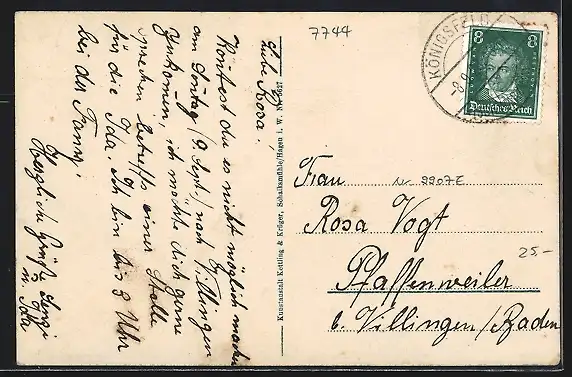 7744
Liebe Rosa!
Könntest du es nicht möglich machen
am Sontag (9. Sept.) nach Villingen
zu kommen, ich möchte dich gerne
sprechen betreffs einer Stelle
für die Ida. Ich bin bis 3 Uhr
bei der Fanny.
Herzliche Grüße
u. Ida
Kunstanstalt Kettling & Krüger, Schalksmühle/Hagen i. W.
KÖNIGSFELD
8 8
Deutsches Reich
Frau
9907E
Rosa Vogt
25.-
Pfaffenweiler
b. Villingen/Baden